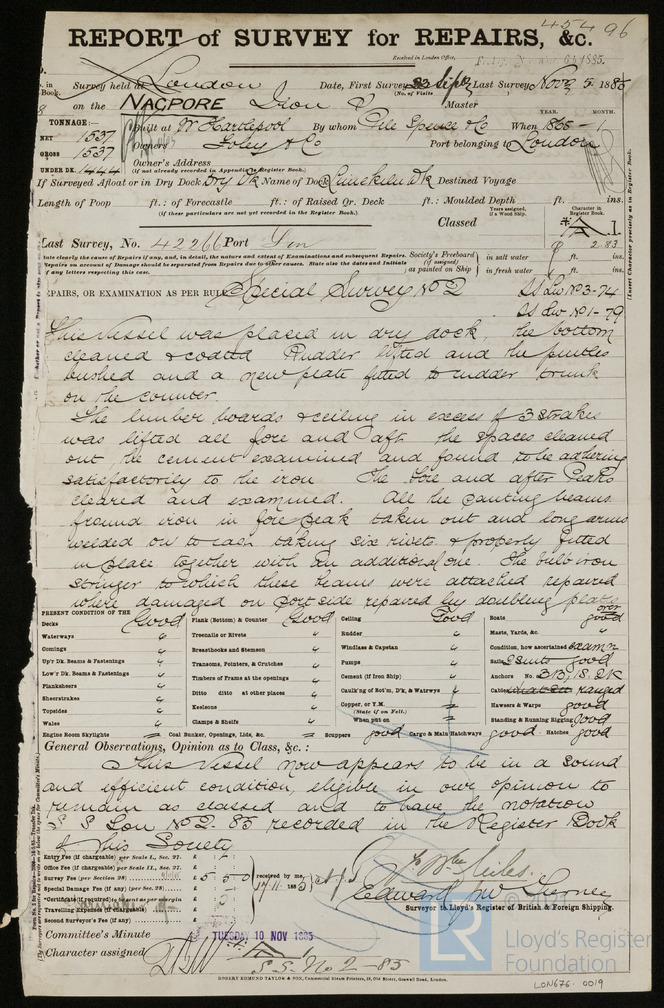 45496
REPORT of SURVEY for REPAIRS, &c.
Received in London Office, Friday, November 6th 1885.
Survey held at London Date, First Survey 23 Sept Last Survey Novr 5 1885
(No. of Visits)
on the NAGPORE Iron Master
TONNAGE:— YEAR. MONTH.
NET 1537 Built at W Hartlepool By whom Pile Spence & Co When 1865 - 1
GROSS 1537 Owners Foley & Co Port belonging to London
UNDER DK. 1444 Owner's Address
(if not already recorded in Appendix to Register Book.)
If Surveyed Afloat or in Dry Dock Dry Dk Name of Dock Limekiln Dk Destined Voyage
Length of Poop ft.: of Forecastle ft.: of Raised Qr. Deck ft.: Moulded Depth ft. ins.
(if these particulars are not yet recorded in the Register Book.)
Classed Years assigned, if a Wood Ship. Character in Register Book.
A 1.
2.83
Last Survey, No. 42266 Port Lon
State clearly the cause of Repairs if any, and, in detail, the nature and extent of Examinations and subsequent Repairs.
Repairs on account of Damage should be separated from Repairs due to other causes. State also the dates and Initials
if any letters respecting this case.
Society's Freeboard (if assigned) as painted on Ship in salt water ft. ins.
in fresh water ft. ins.
REPAIRS, OR EXAMINATION AS PER RULE Special Survey No 2
SS Lon No 3-74
SS Lon No 1-79
This Vessel was placed in dry dock, the bottom
cleaned & coated Rudder lifted and the pintles
bushed and a new plate fitted to rudder trunk
on the counter.
The limber boards & ceiling in excess of 3 strakes
was lifted all fore and aft the spaces cleaned
out the cement examined and found to be adhering
satisfactorily to the iron. The fore and after Peaks
cleared and examined. All the panting beams
found iron in fore peak taken out and long arms
welded on to each taking six rivets & properly fitted
in place together with an additional one. The bulb iron
stringer to which these beams were attached repaired
where damaged on port side repaired by doubling plates over
PRESENT CONDITION OF THE
Decks Good Plank (Bottom) & Counter Good Ceiling Good Boats good
Waterways " Treenails or Rivets " Rudder " Masts, Yards, &c. "
Comings " Breasthooks and Stemson " Windlass & Capstan " Condition, how ascertained examn
Up'r Dk. Beams & Fastenings " Transoms, Pointers, & Crutches " Pumps " Sails 2 suits good
Low'r Dk. Beams & Fastenings " Timbers of the Frame at the openings " Cement (if Iron Ship) " Anchors No. 3B, 1S, 2K
Planksheers " Ditto ditto at other places " Caulk'ng of Bot'm, D'k, & Watrwys " Cables ranged
Sheerstrakes " Keelsons " Copper, or Y.M. (State if on Felt.) Hawsers & Warps good
Topsides " Clamps & Shelfs " When put on Standing & Running Rigging good
Wales "
Engine Room Skylights Coal Bunker, Openings, Lids, &c. Scuppers good Cargo & Main Hatchways good Hatches good
General Observations, Opinion as to Class, &c.:
This Vessel now appears to be in a sound
and efficient condition, eligible in our opinion to
remain as classed and to have the notation
S S Lon No 2. 85 recorded in the Register Book
of this Society
Entry Fee (if chargeable) per Scale I., Sec. 27. £
Office Fee (if chargeable) per Scale II., Sec. 27. £
Survey Fee (per Section 28) £ 5 : 5 : 0 received by me,
Special Damage Fee (if any) (per Sec. 28) £ 17/11 1885
*Certificate (if required) to be sent as per margin
Travelling Expenses (if chargeable) £
Second Surveyor's Fee (if any) £
Surveyor to Lloyd's Register of British & Foreign Shipping.
Committee's Minute TUESDAY 10 NOV 1885
Character assigned A 1
S.S. No 2 - 85
ROBERT EDMUND TAYLOR & SON, Commercial Steam Printers, 19, Old Street, Goswell Road, London.
LR
Lloyd's Register
Foundation
LON676-0019